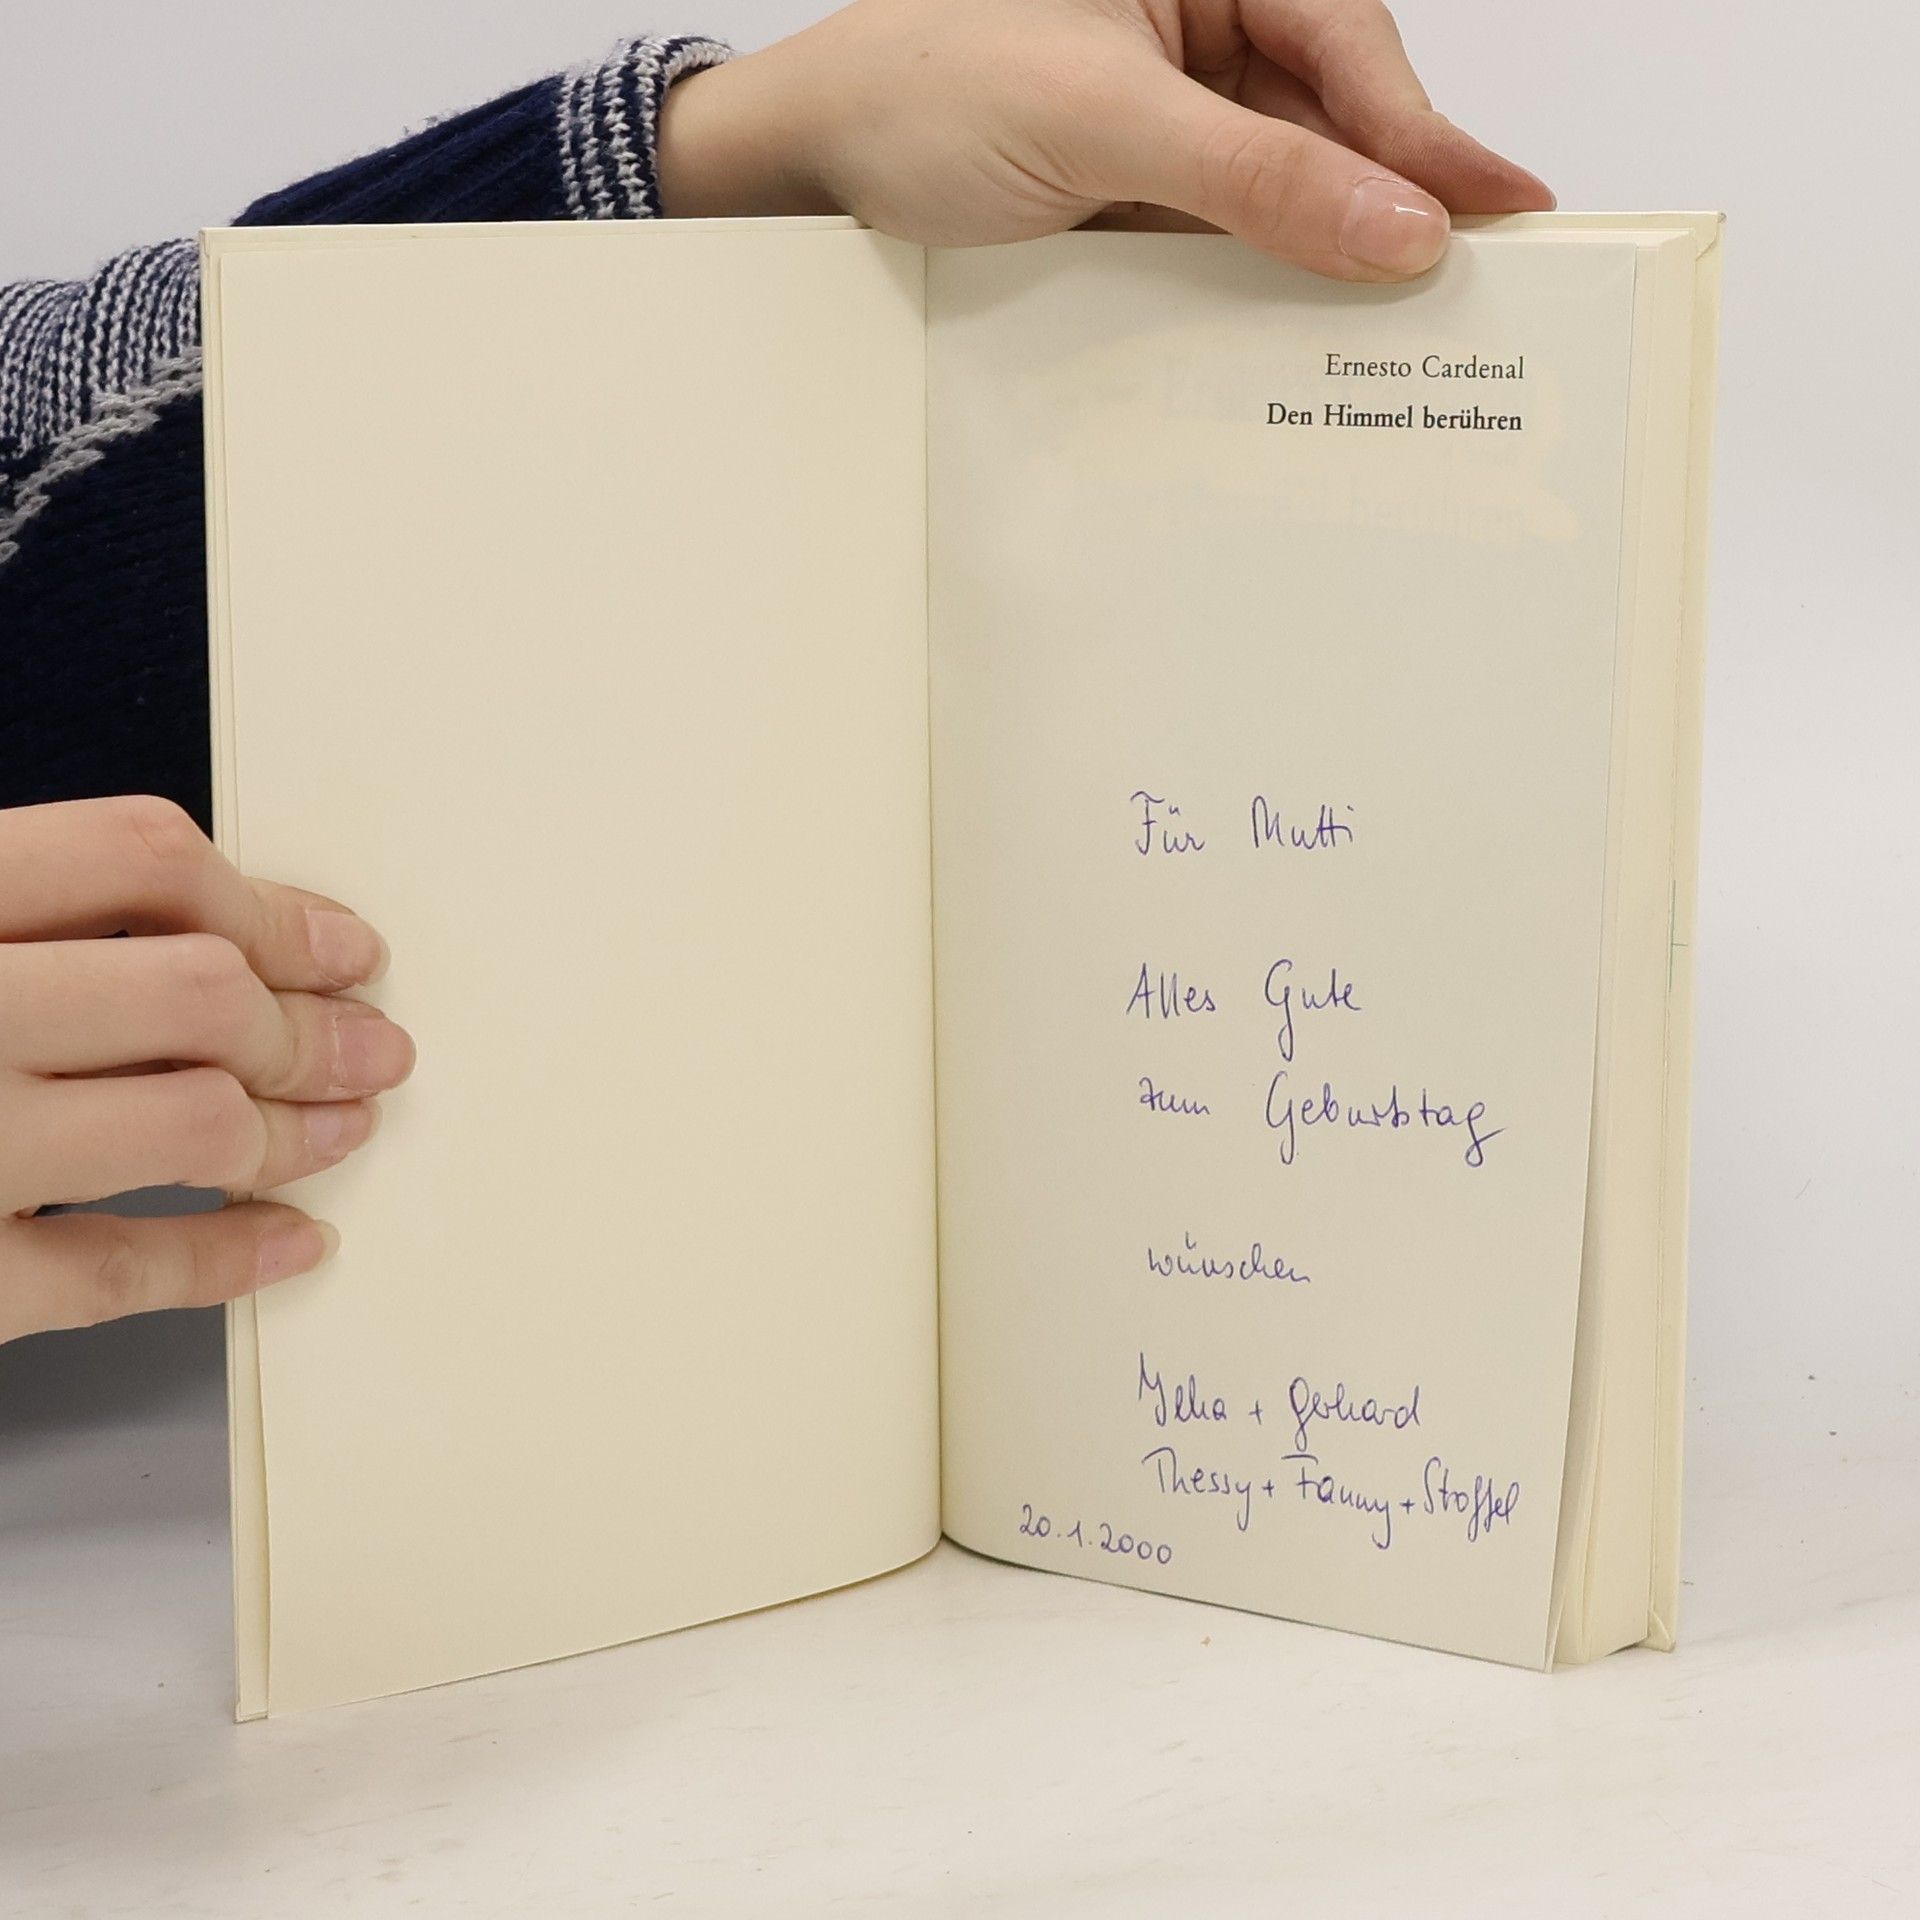 Ernesto Cardenal
Den Himmel berühren
Für Mutti
Alles Gute
zum Geburtstag
wünschen
+ Gerhard
Thessy + Fanny + Stoffel
20.1.2000